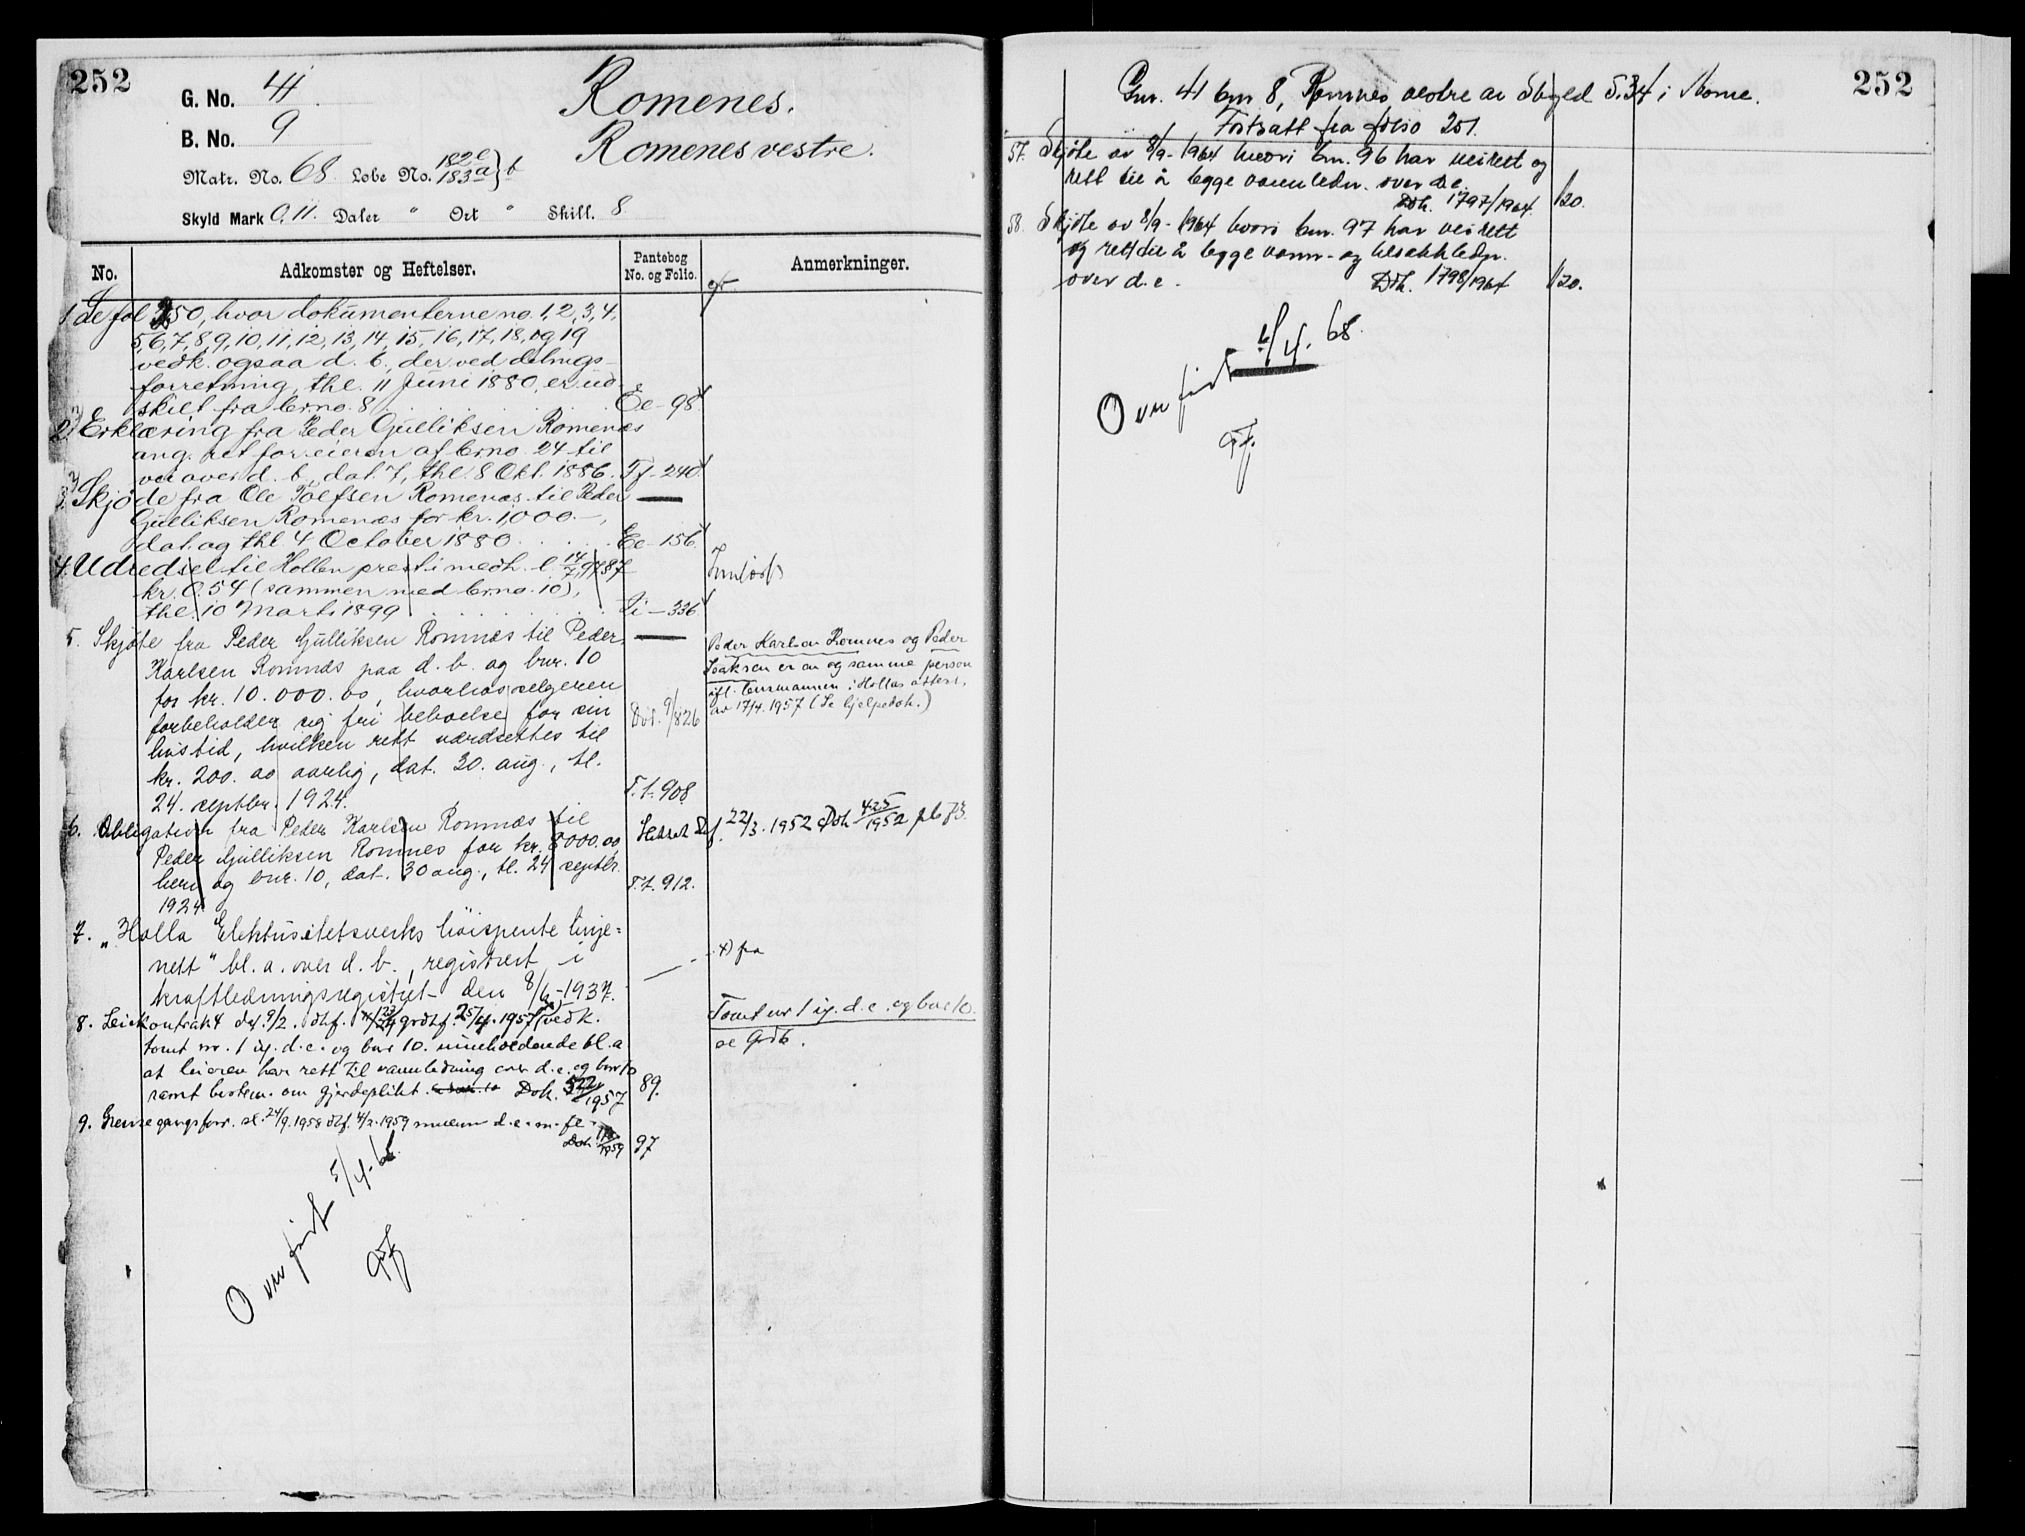 252
G. No. 41
B. No. 9
Romenes.
Romenes vestre.
Matr. No. 68 Løbe No. 182e 183a } b
Skyld Mark 0,11. Daler " Ort " Skill. 8
No. Adkomster og Heftelser. Pantebog No. og Folio. Anmerkninger.
1 Se fol 250, hvor dokumenterne no. 1, 2, 3, 4,
5, 6, 7, 8, 9, 10, 11, 12, 13, 14, 15, 16, 17, 18, og 19
vedk. ogsaa d. b., der ved delings-
forretning, thl. 11 Juni 1880, er ud-
skilt fra brno. 8 Ee - 98
2. Erklæring fra Peder Gulliksen Romenæs
ang. ret for eieren af brno. 24 til
vei over d. b., dat. 7, thl. 8 Okt. 1886. Ff - 240
3. Skjøde fra Ole Tolfsen Romenæs til Peder
Gulliksen Romenæs for kr. 1,000.-,
dat. og thl 4 October 1880 Ee - 156
4. Udredsel til Hollen presti medh. l. 14/7, 1787
kr. 0.54 (sammen med brno. 10),
thl. 10 Marts 1899 Ii - 336
Innløst
5. Skjøte fra Peder Gulliksen Romnæs til Peder
Karlsen Romnæs paa d. b. og bnr. 10
for kr. 10.000.00, hvorhos selgeren
forbeholder sig fri beboelse for sin
livstid, hvilken rett værdsettes til
kr. 200.00 aarlig, dat. 30. aug., tl.
24. septbr. 1924. T.1. 908
Peder Karlsen Romnes og Peder
Isaksen er en og samme person
ifl. lensmannen i Hollas attest,
av 17/4. 1957 (Se hjelpedok.)
6. Obligation fra Peder Karlsen Romnæs til
Peder Gulliksen Romnes for kr. 8000.00
heri og bnr. 10, dat. 30 aug., tl. 24 septbr.
1924 T.1. 912.
Slettet Dbf. 22/3. 1952 Dok 425/1952
7. "Holla Elektrisitetsverks høispente linje=
nett" bl. a. over d. b., registrert i
kraftledningsregistret den 8/6-1937.
x) fra
8. Leiekontrakt dat. 9/2. dbf. 25/4. 1957 vedk.
tomt nr. 1 ig. d. e. og bnr 10. inneholdende bl. a.
at leieren har rett til vannledning over d. e. og bnr 10
samt bestem. om gjerdeplikt. Dok. 522/1957 89.
Tomt nr 1 ig. d. e. og bnr 10.
se Grdb.
9. Grensegangsforr. av. 24/9. 1958 dbf. 4/2. 1959 mellem d. e. m. fl.
Dok. 1959 97
Overført 5/4. 68
252
Gnr. 41 bnr 8, Romnes vestre av Skyld 5.34 i Nome.
Fortsatt fra folio 251.
57. Skjøte av 8/9-1964 hvori bnr. 96 har veirett og
rett til å legge vannledn. over d. e.
Dok. 1797/1964. 120.
58. Skjøte av 8/9-1964 hvori bnr. 97 har veirett
og rett til å legge vann- og kloakkledn.
over d. e. Dok. 1798/1964 120.
Overført 6/4. 68.